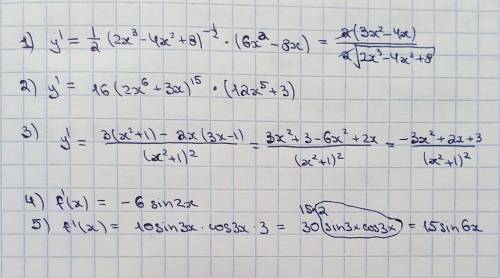 1) y' = 1/2 (2x³-4x²+8)^(-1/2) · (6x²-8x) = 2(3x²-4x) / 2√(2x³-4x²+8)
2) y' = 16(2x⁶+3x)¹⁵ · (12x⁵+3)
3) y' = 3(x²+1) - 2x(3x-1) / (x²+1)² = 3x²+3-6x²+2x / (x²+1)² = -3x²+2x+3 / (x²+1)²
4) f'(x) = -6 sin2x
15·2
5) f'(x) = 10sin3x·cos3x·3 = 30(sin3x cos3x) = 15sin6x